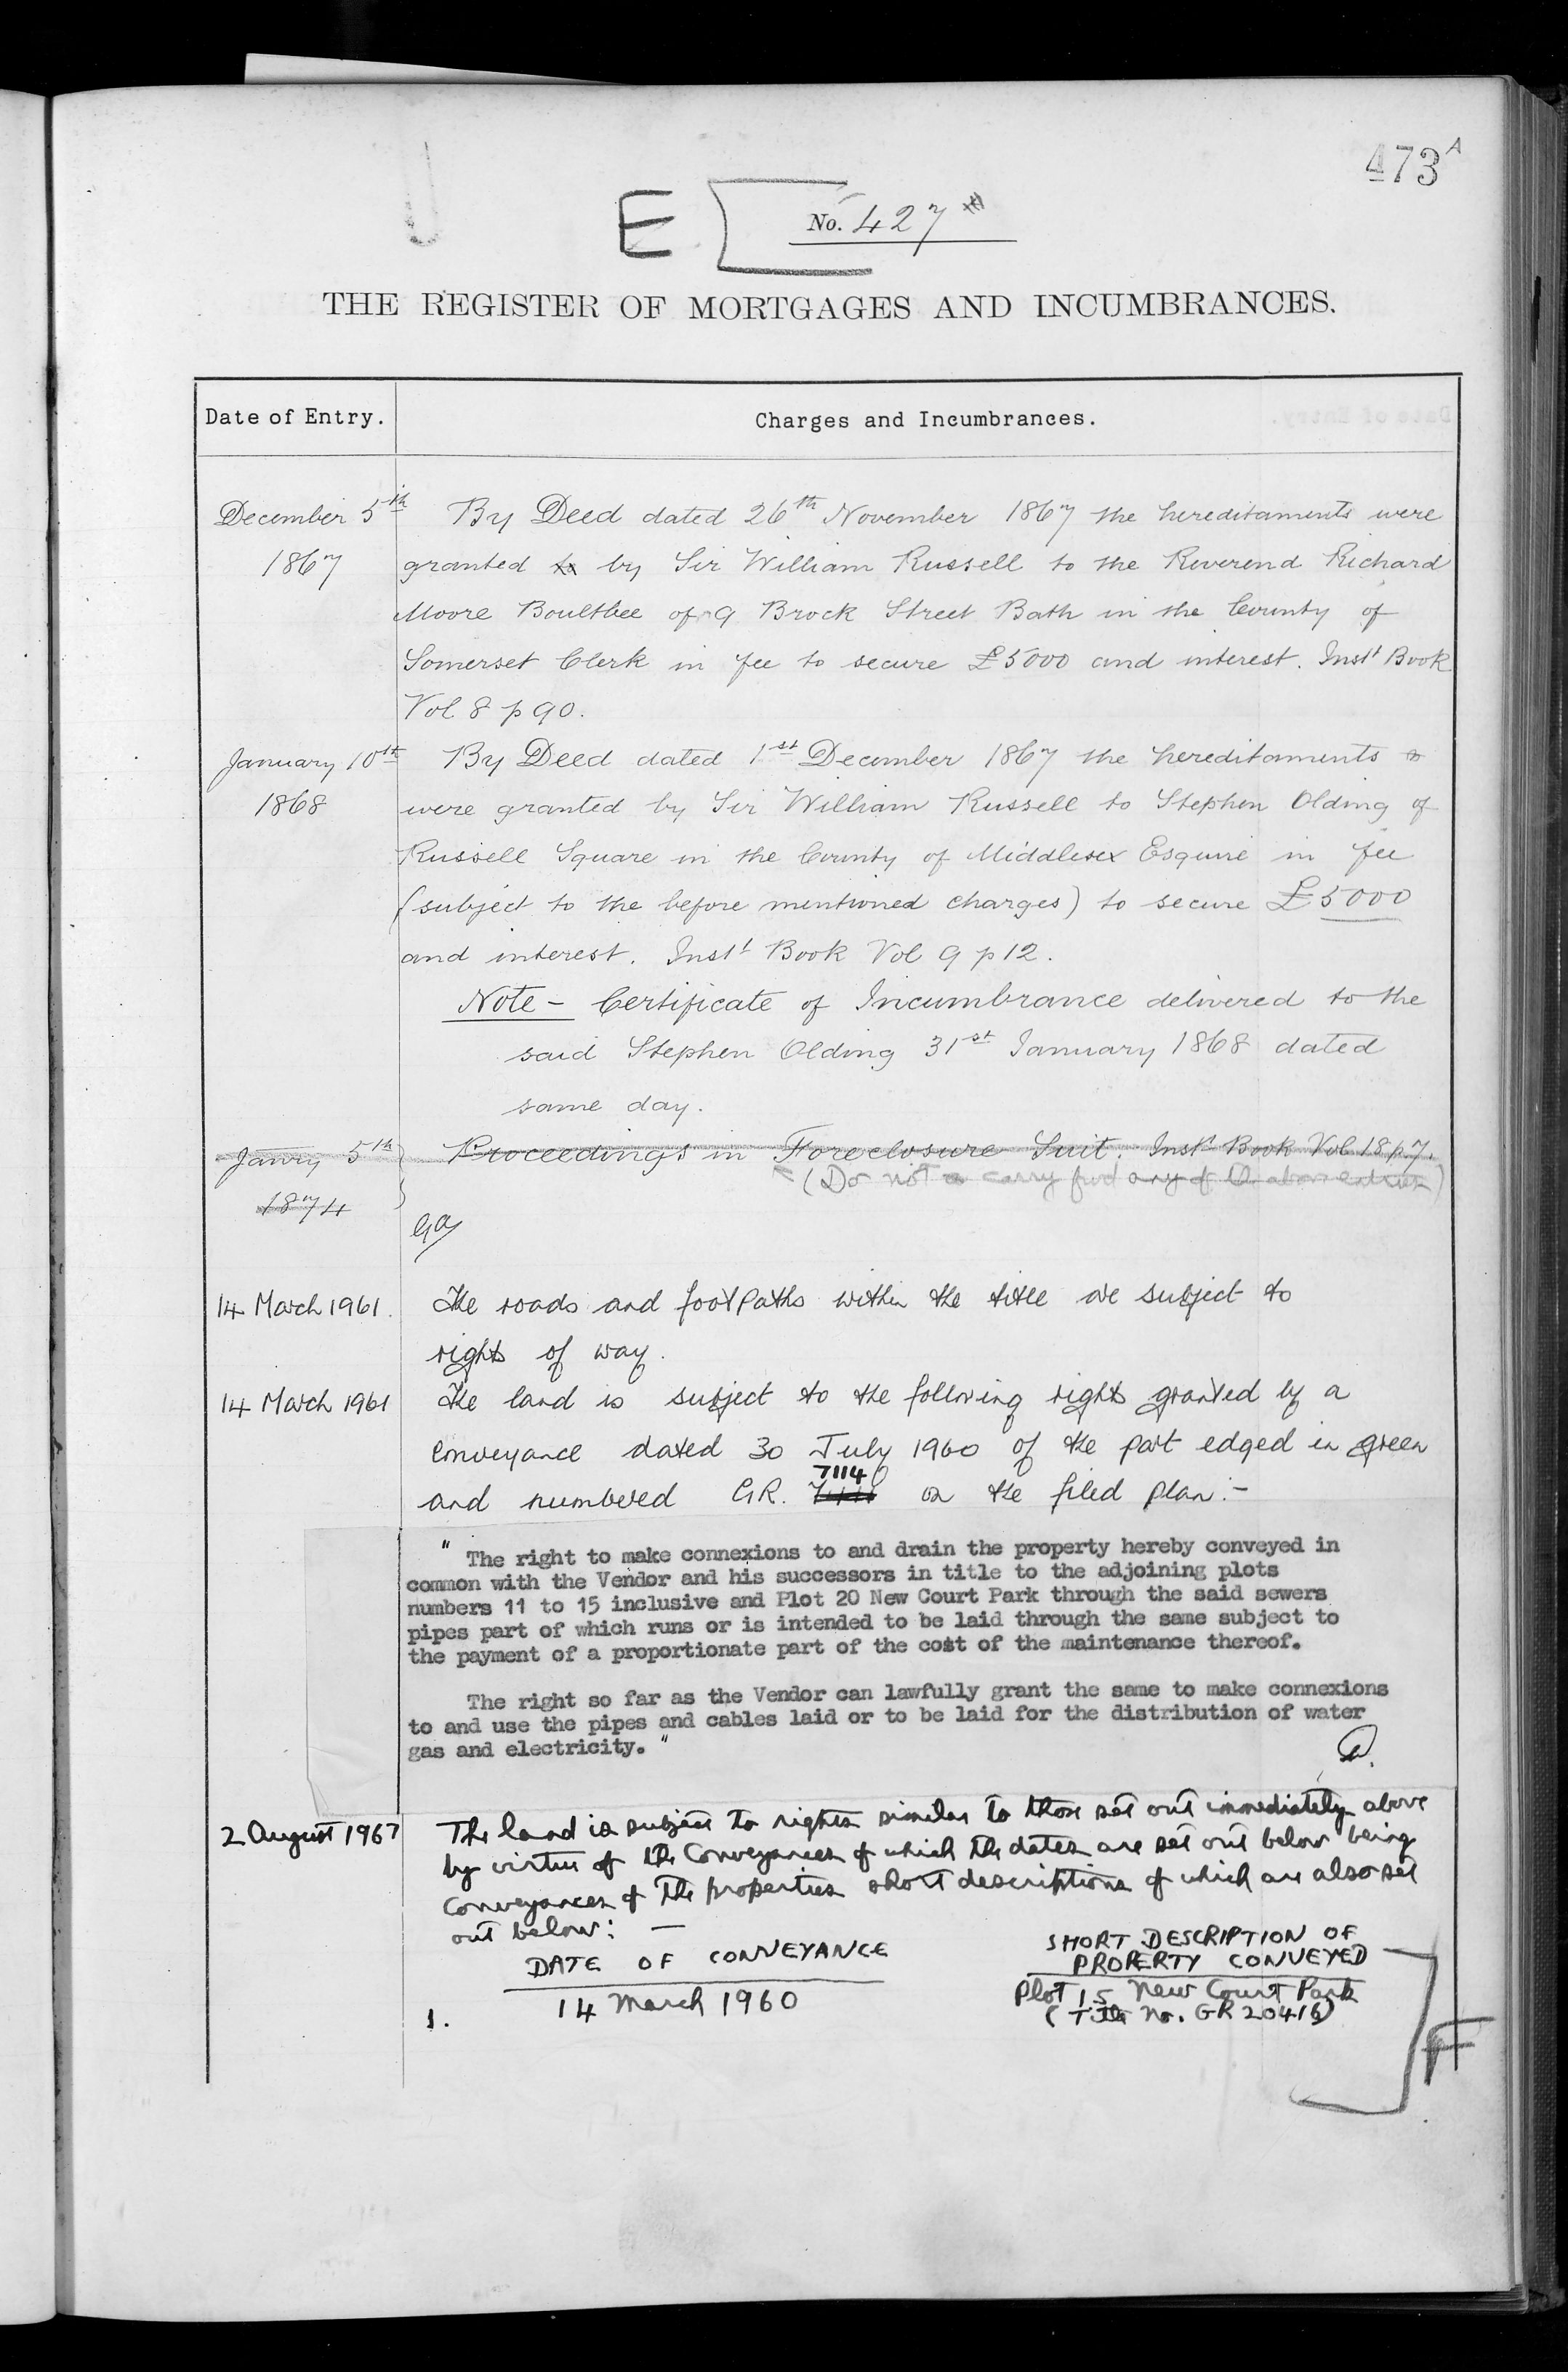 473 A
E
No. 427
THE REGISTER OF MORTGAGES AND INCUMBRANCES.
Date of Entry.
Charges and Incumbrances.
December 5th
1867
By Deed dated 26th November 1867 the hereditaments were
granted to by Sir William Russell to the Reverend Richard
Moore Boultbee of 9 Brock Street Bath in the County of
Somerset Clerk in fee to secure £5000 and interest. Inst Book
Vol 8 p 90.
January 10th
1868
By Deed dated 1st December 1867 the hereditaments
were granted by Sir William Russell to Stephen Olding of
Russell Square in the County of Middlesex Esquire in fee
(subject to the before mentioned charges) to secure £5000
and interest. Inst Book Vol 9 p 12.
Note - Certificate of Incumbrance delivered to the
said Stephen Olding 31st January 1868 dated
same day.
Janry 5th
1874
Proceedings in Foreclosure Suit. Inst Book Vol 18 p 7.
(Do not carry fwd any of the above entries)
14 March 1961.
The roads and footpaths within the title are subject to
rights of way.
14 March 1961
The land is subject to the following rights granted by a
conveyance dated 30 July 1960 of the part edged in green
and numbered GR. 7114 on the filed plan:-
" The right to make connexions to and drain the property hereby conveyed in
common with the Vendor and his successors in title to the adjoining plots
numbers 11 to 15 inclusive and Plot 20 New Court Park through the said sewers
pipes part of which runs or is intended to be laid through the same subject to
the payment of a proportionate part of the cost of the maintenance thereof.
The right so far as the Vendor can lawfully grant the same to make connexions
to and use the pipes and cables laid or to be laid for the distribution of water
gas and electricity."
2 August 1967
The land is subject to rights similar to those set out immediately above
by virtue of the Conveyances of which the dates are set out below being
Conveyances of the properties short descriptions of which are also set
out below: —
DATE OF CONVEYANCE
SHORT DESCRIPTION OF
PROPERTY CONVEYED
1.
14 March 1960
Plot 15 New Court Park
(Title No. GR 20416)
F